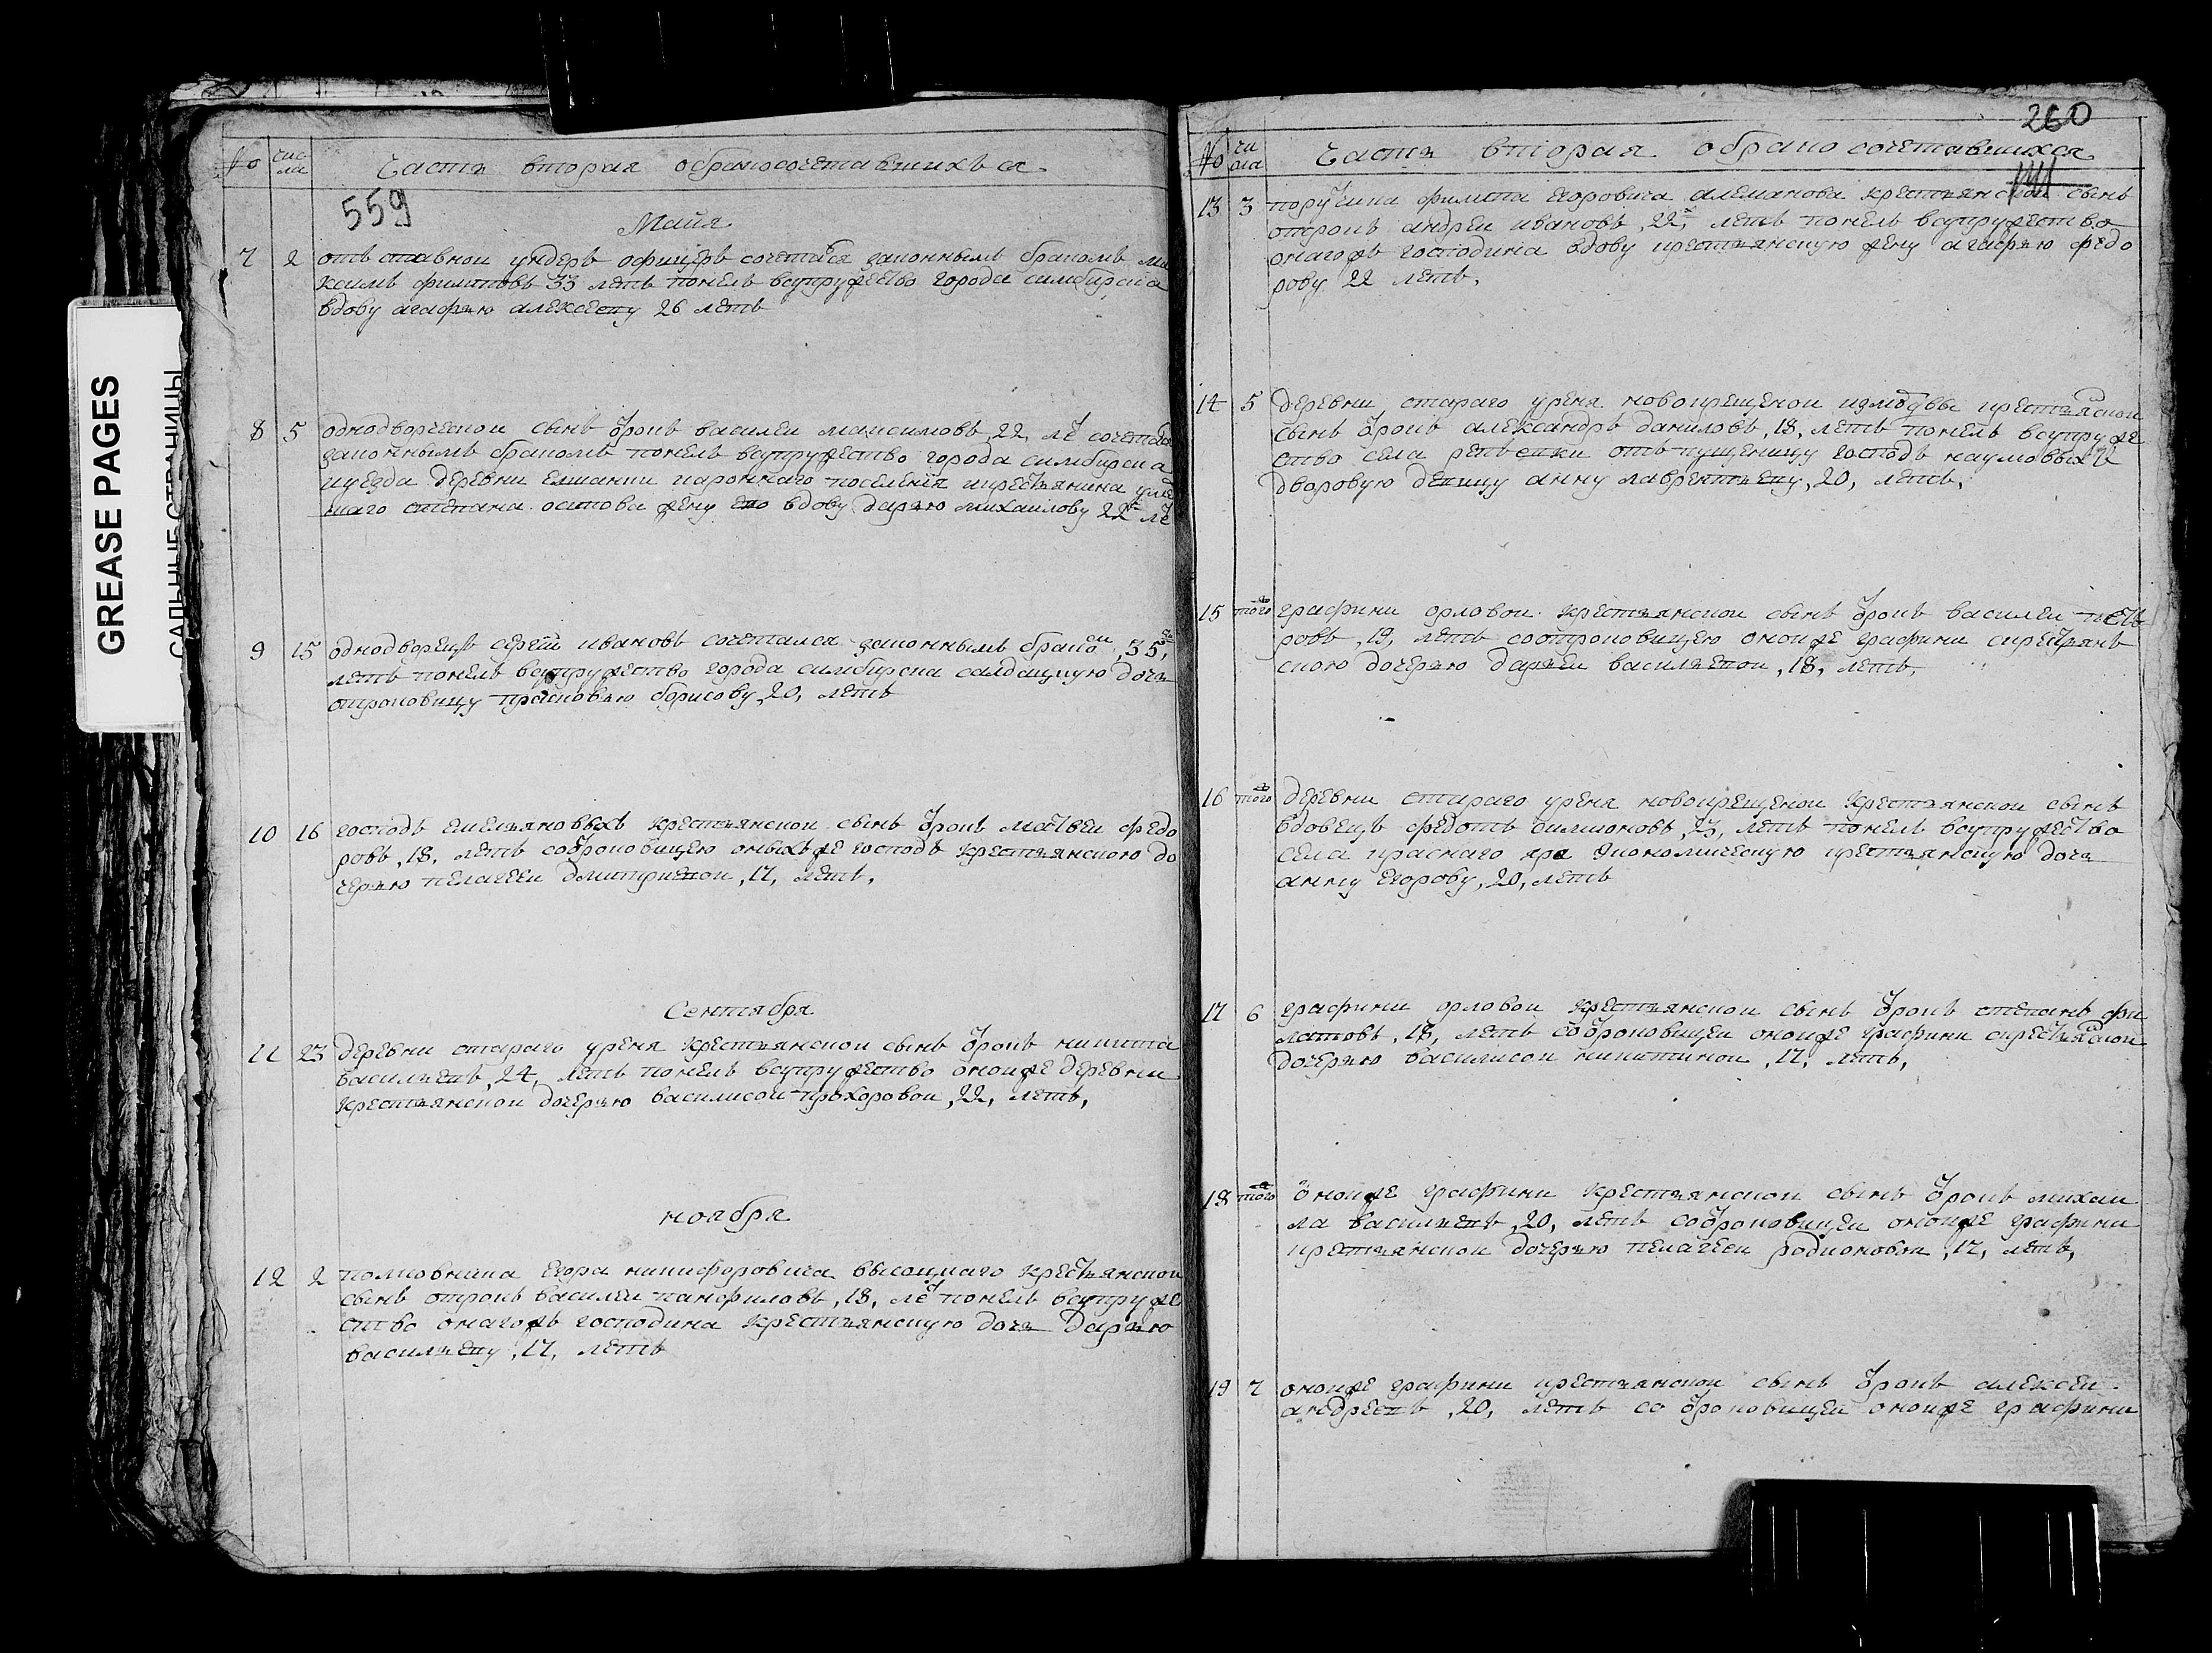 GREASE PAGES
САЛЬНЫЕ СТРАНИЦЫ
№ чис
ла
Часть вторая обракосочетавшихъся
559
Майя
7 2 отъ ставнои ундеръ офицеръ сочетася законнымъ бракомъ ма
ксимъ филиповъ 33 летъ понелъ всупружество города симбирска
вдову агафью алексееву 26 летъ
8 5 однодворческои сынъ ѿрокъ василеи максимовъ, 22, ле сочетася
законнымъ бракомъ понелъ всупружество города симбирска
иуезда деревни елшанки пароннаго поселения икрестьянина уме
шаго степана осипова жену ево вдову дарью михаилову 22 ле
9 15 однодворецъ сергеи ивановъ сочетался законнымъ бракомъ, 35,
летъ понелъ всупружество города симбирска салдацкую дочь
отроковицу прасковью борисову, 20, летъ
10 16 господъ емельяновыхъ крестьянскои сынъ ѿрокъ матвеи федо
ровъ, 18, летъ соѿроковицею оныхъже господъ крестьянскою до
черью пелагееи дмитриевои, 17, летъ,
Сентября
11 23 деревни стараго уреня крестьянскои сынъ ѿрокъ никита
васильевъ, 24, летъ понелъ всупружество оноиже деревни
крестьянскои дочерью василисои прохоровои, 22, летъ,
ноября
12 2 полковника егора никифоровича высоцкаго крестьянскои
сынъ отрокъ василеи панфиловъ, 18, ле понелъ всупруже
ство онагожъ господина крестьянскую дочь дарью
васильеву, 17, летъ
260
№ чи
сла
Часть вторая обракосочетавшихся
13 3 поручика филипа егоровича алеманова крестьянскои сынъ
отрокъ андреи ивановъ, 22, летъ понелъ всупружество
онагожъ господина вдову крестьянскую жену агафью федо
рову 22 летъ,
14 5 деревни стараго уреня новокрещенои измордвы крестьянскои
сынъ ѿрокъ александръ даниловъ, 18, летъ понелъ всупруже
ство села репьевки отъпущеницу господъ наумовыхъ
дворовую девицу анну лаврентьеву, 20, летъ,
15 того графини орловои крестьянскои сынъ ѿрокъ василеи пет
ровъ, 19, летъ соотроковицею оноиже графини скрестьянъ
скою дочерью дарьеи васильевои, 18, летъ,
16 того деревни стараго уреня новокрещенои крестьянскои сынъ
вдовецъ федотъ силионовъ, 23, летъ понелъ всупружество
села краснаго яра экономическую крестьянскую дочь
анну егорову, 20, летъ
17 6 графини орловои крестьянскои сынъ ѿрокъ степанъ фи
латовъ, 18, летъ соѿроковицеи оноиже графини скрестьянскои
дочерью василисои никитинои, 17, летъ,
18 того оноиже графини крестьянскои сынъ ѿрокъ михаи
ла васильевъ, 20, летъ соѿроковицеи оноиже графини
крестьянскои дочерью пелагееи родионовои, 17, летъ,
19 7 оноиже графини крестьянскои сынъ ѿрокъ алексеи
андреевъ, 20, летъ со ѿроковицеи оноиже графини